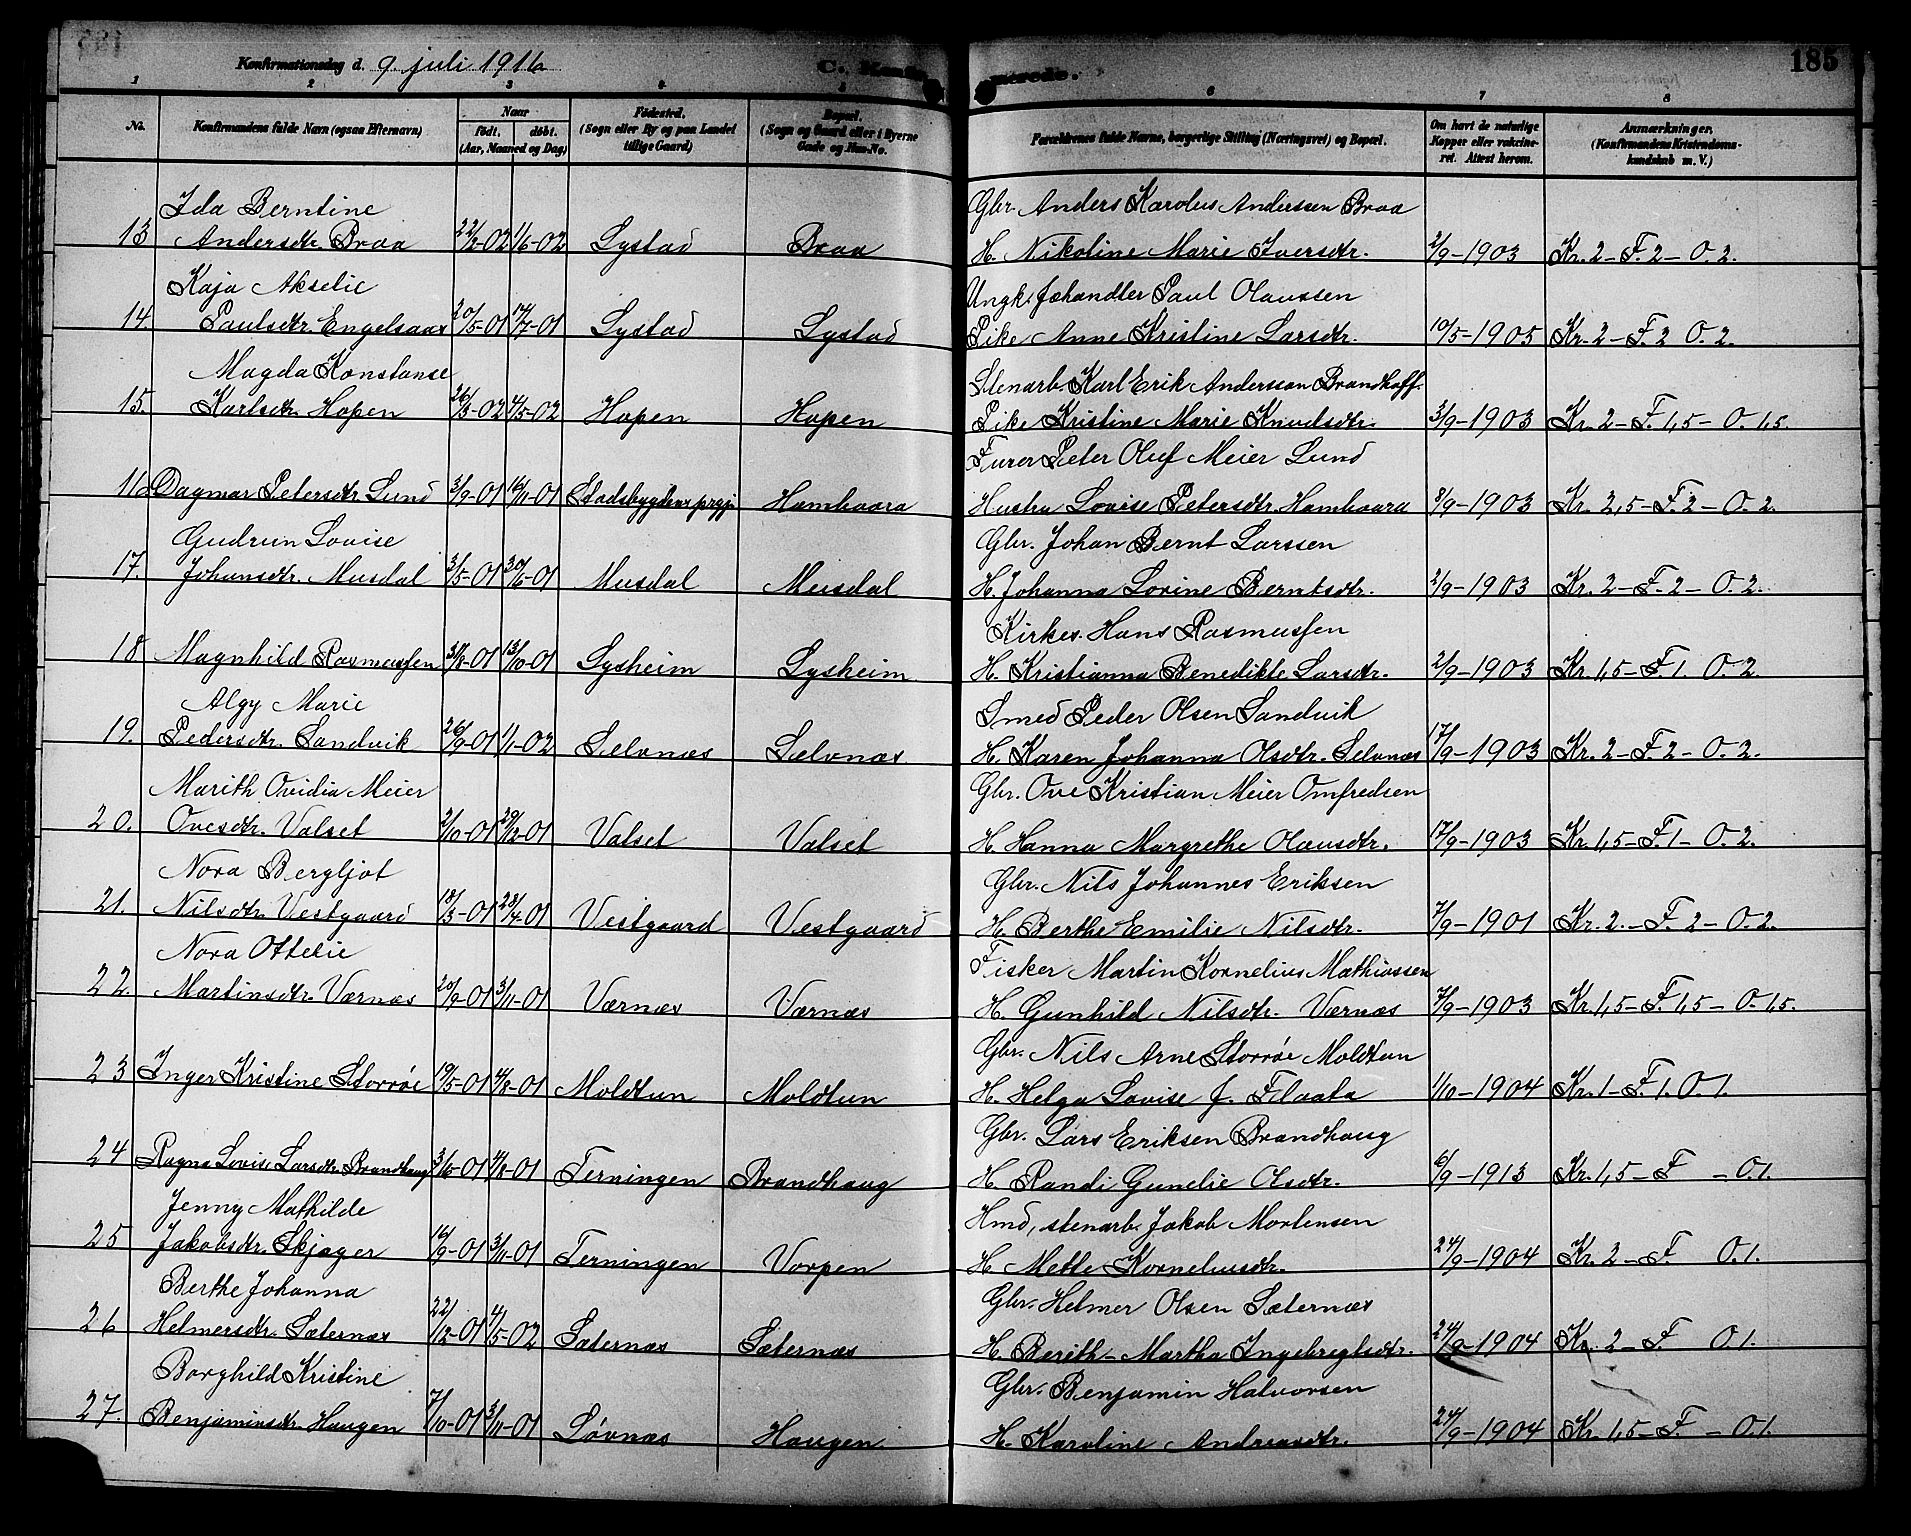 Konfirmationsdag d. 9. juli 1916
C. Konfirmerede.
185
1 2 3 4 5 6 7 8
No.
Konfirmandens fulde Navn (ogsaa Efternavn)
Naar
født.
døbt.
(Aar, Maaned og Dag)
Fødested.
(Sogn eller By og paa Landet
tillige Gaard)
Bopæl.
(Sogn og Gaard eller i Byerne
Gade og Hus-No.
Forældrenes fulde Navne, borgerlige Stilling (Næringsvei) og Bopæl.
Om havt de naturlige
Kopper eller vaccine-
ret. Attest herom.
Anmærkninger.
(Konfirmandens Kristendoms-
kundskab m. V.)
Ida Berntine Gbr. Anders Karolus Anderssen Braa
13 Andersdtr. Braa 22/2-02 1/6-02 Lystad Braa H. Nikoline Marie Iversdtr. 2/9-1903 Kr. 2-F. 2-O. 2.
Kaja Akselie Ungk. Johandler Paul Olaussen
14. Paulsdtr. Engelsaas 20/5-01 14/7-01 Lystad Lystad Pike Anne Kristine Larsdtr. 10/5-1905 Kr. 2-F. 2 O. 2.
Magda Konstanse Stenarb. Karl Erik Andersson Brandhoff.
15. Karlsdtr. Hopen 26/3-02 4/5-02 Hopen Hopen Pike Kristine Marie Knudsdtr. 3/9-1903 Kr. 2-F. 1,5-O. 1,5.
Furer Peter Oluf Meier Lund
16 Dagmar Petersdtr Lund 3/9-01 16/11-01 Stadsbygdens prgj. Hambaara Hustru Lovise Petersdtr. Hambaara 3/9-1903 Kr. 2,5-F. 2-O. 2.
Gudrun Lovise Gbr. Johan Bernt Larssen
17. Johansdtr. Musdal 3/5-01 30/6-01 Musdal Musdal H. Johanna Lorine Berntsdtr. 2/9-1903 Kr. 2-F. 2-O. 2.
Kirkes. Hans Rasmussen
18 Magnhild Rasmussen 31/8-01 13/10-01 Lysheim Lysheim H. Kristianna Benedikte Larsdtr. 2/9-1903 Kr. 1,5-F. 1. O. 2.
Algy Marie Smed Peder Olsen Sandvik
19. Pedersdtr. Sandvik 26/9-01 1/1-02 Selvnæs Selvnæs H. Karen Johanna Olsdtr. Selvnæs 17/9-1903 Kr. 2-F. 2-O. 2.
Marith Ovidia Meier Gbr. Ove Kristian Meier Omfredsen
20. Ovesdtr. Valset 2/10-01 29/12-01 Valset Valset H. Hanna Margrethe Olausdtr. 17/9-1903 Kr. 1,5-F. 1-O. 2.
Nora Bergljot Gbr. Nils Johannes Eriksen
21. Nilsdtr. Vestgaard 18/3-01 28/4-01 Vestgaard Vestgaard H. Berthe Emilie Nilsdtr. 7/9-1901 Kr. 2.-F. 2-O. 2.
Nora Ottelie Fisker Martin Kornelius Mathiassen
22. Martinsdtr. Værnæs 20/9-01 3/11-01 Værnæs Værnæs H. Gunhild Nilsdtr. Værnæs 7/9-1903 Kr. 1,5-F. 1,5-O. 1,5.
Gbr. Nils Arne Storrøe Moldtun
23 Inger Kristine Storrøe 19/5-01 4/8-01 Moldtun Moldtun H. Helga Lovise f. Flaata 1/10-1904 Kr. 1-F. 1. O. 1.
Gbr. Lars Eriksen Brandhaug
24 Ragna Lovise Larsdtr. Brandhaug 3/6-01 4/8-01 Terningen Brandhaug H. Randi Gunelie Olsdtr. 6/9-1913 Kr. 1,5-F -O. 1.
Jenny Mathilde Hmd, stenarb. Jakob Mortensen
25 Jakobsdtr. Skjager 16/9-01 3/11-01 Terningen Vorpen H Mette Korneliusdtr. 24/9-1904 Kr. 2-F. O. 1.
Berthe Johanna Gbr. Helmer Olsen Sæternæs
26 Helmersdtr. Sæternæs 22/12-01 4/5-02 Sæternæs Sæternæs H. Berith-Martha Ingebregtsdtr. 24/9-1904 Kr. 2-F. O. 1.
Borghild Kristine Gbr. Benjamin Halvorsen
27. Benjaminsdtr. Haugen 7/10-01 3/11-01 Løvnæs Haugen H. Karoline Andreasdtr. 24/9-1904 Kr. 1,5-F. -O. 1.